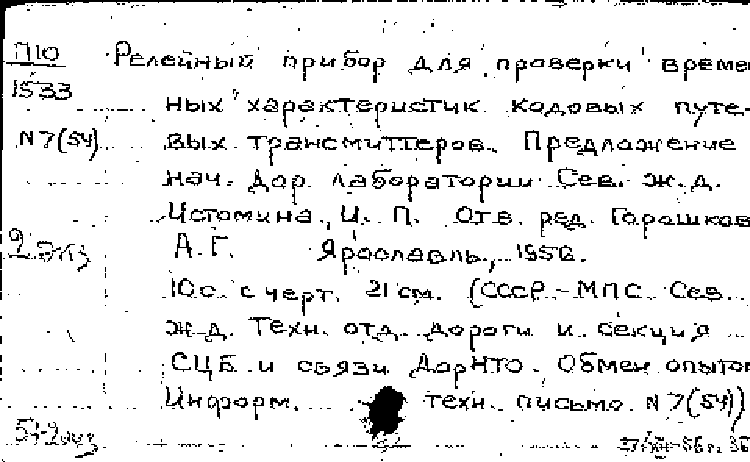 П10 Релейный прибор для проверки време-
1533 ных характеристик кодовых путе-
N 7(54) вых трансмиттеров. Предложение
нач. Дор. лаборатории Сев. ж.д.
Истомина, И. П. Отв. ред. Горашков
2 экз А. Г. Ярославль, 1956.
10 с. с черт. 21 см. (СССР - МПС. Сев.
ж-д. Техн. отд. дороги и секция
СЦБ и связи ДорНТО. Обмен опытом
Информ. техн. письмо. N 7(54))